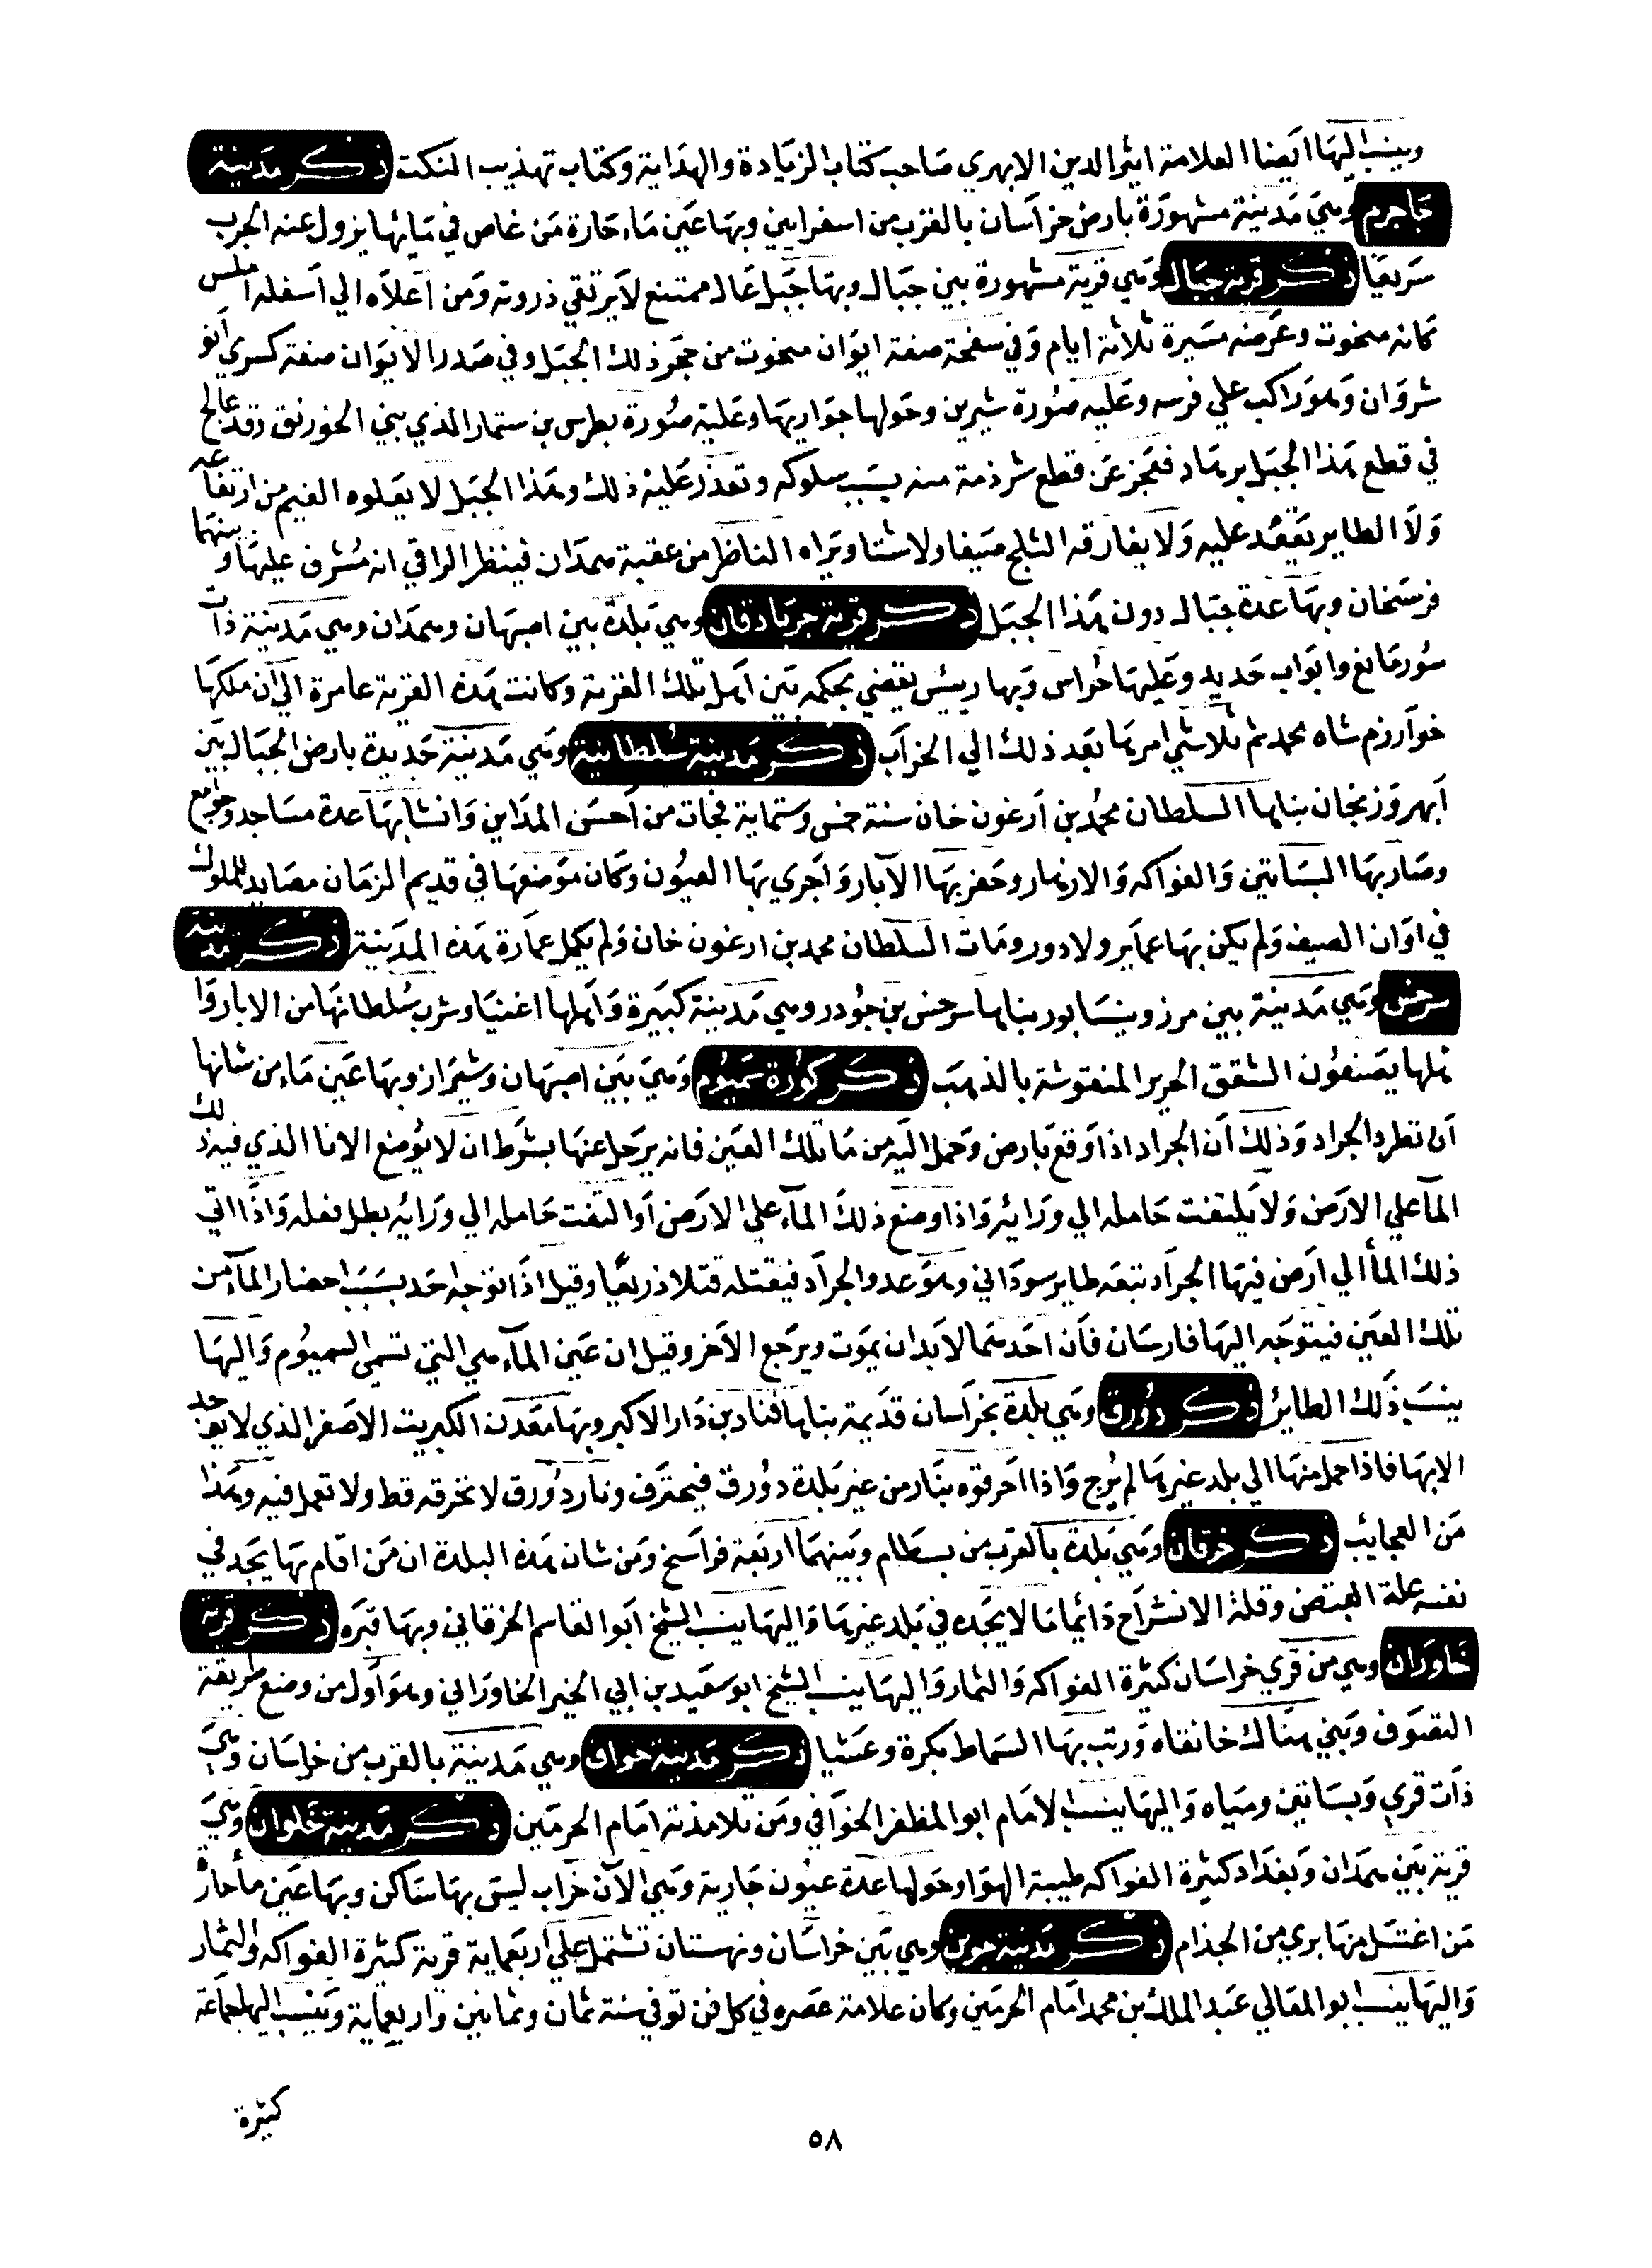 وينسب اليها ايضا العلامة اثير الدين الابهري صاحب كتاب الزيادة والهداية وكتاب تهذيب النكت ذكر مدينة
جاجرم وهي مدينة مشهورة بارض خراسان بالقرب من اسفرايين وبها عين ماء حارة من غاص في مائها يزول عنه الجرب
سريعا ذكر قرية جبال وهي قرية مشهورة بين جبال وبها جبل عال ممتنع لا يرتقي ذروته ومن اعلاه الي اسفله املس
كانه منحوت وعرضه مسيرة ثلاثة ايام وفي سفحة صفة ايوان منحوت من حجر ذلك الجبل وفي صدر الايوان صفة كسري انو
شروان وهو راكب علي فرسه وعليه صورة شيرين وحولها جواريها وعليه صورة بطرس بن سنمار الذي بني الخورنق وقد عالج
في قطع هذا الجبل برماد فعجز عن قطع شرذمة منه بسبب سلوكه وتعذر عليه ذلك وهذا الجبل لا يعلوه الغيم من ارتفاعه
ولا الطاير يقعد عليه ولا يفارقه الثلج صيفا ولا شتا ويراه الناظر من عقبة همدان فينظر الراقي انه مشرف عليها وبينهما
فرسخان وبها عدة جبال دون هذا الجبل ذكر قرية جرباذقان وهي بلدة بين اصبهان وهمدان وهي مدينة ذات
سور مانع وابواب حديد وعليها حراس وبها رييس يقضي بحكمه بين اهل تلك القرية وكانت هذه القرية عامرة الي ان ملكها
خوارزم شاه محمد ثم تلاشي امرها بعد ذلك الي الخراب ذكر مدينة سلطانية وهي مدينة جديدة بارض الجبال بين
ابهر وزنجان بناها السلطان محمد بن ارغون خان سنة خمس وستماية فجات من احسن المداين وانشا بها عدة مساجد وجوامع
وصار بها البساتين والفواكه والازهار وحفر بها الآبار واجري بها العيون وكان موضعها في قديم الزمان مصايد للملوك
في اوان الصيف ولم يكن بها عماير ولا دور ومات السلطان محمد بن ارغون خان ولم يكمل عمارة هذه المدينة ذكر مدينة
سرخس وهي مدينة بين مرو ونيسابور بناها سرخس بن جودر وهي مدينة كبيرة واهلها اغنيا وشرب سلطانها من الابار وا
هلها يصنعون الشقق الحرير المنقوشة بالذهب ذكر كورة سميوم وهي بين اصبهان وشيراز وبها عين ماء من شانها
ان تطرد الجراد وذلك ان الجراد اذا وقع بارض وحمل اليه من ما تلك العين فانه يرحل عنها بشرط ان لا يوضع الانا الذي فيه ذلك
المآ علي الارض ولا يلتفت حامله الي ورائه واذا وضع ذلك المآء علي الارض او التفت حامله الي ورائه بطل فعله واذا اتي
ذلك المأ الي ارض فيها الجراد تبعه طاير سوداني وهو عدو الجراد فيقتله قتلا ذريعا وقيل اذا توجه احد بسبب احضار المآء من
تلك العين فيتوجه اليها فارسان فان احدهما لا بد ان يموت ويرجع الاخر وقيل ان عين المآء هي التي تسمى السميوم واليها
ينسب ذلك الطائر ذكر دورق وهي بلدة بخراسان قديمة بناها قناد بن دارا الاكبر وبها معدن الكبريت الاصفر الذي لا يوجد
الا بها فاذا حمل منها الي بلد غيرها لم يرج واذا احرقوه بنار من غير بلدة دورق فيحترق ونار دورق لا تحرقه قط ولا تعمل فيه وهذا
من العجائب ذكر خرقان وهي بلدة بالقرب من بسطام وبينهما اربعة فراسخ ومن شان هذه البلدة ان من اقام بها يجد في
نفسه علة القبض وقلة الانشراح دائما ما لا يجده في بلد غيرها واليها ينسب الشيخ ابو القاسم الخرقاني وبها قبره ذكر قرية
خاوران وهي من قري خراسان كثيرة الفواكه والثمار واليها ينسب الشيخ ابو سعيد بن ابي الخير الخاوراني وهو اول من وضع طريقة
التصوف وبني هناك خانقاه ورتب بها السماط بكرة وعشيا ذكر مدينة خواف وهي مدينة بالقرب من خراسان وهي
ذات قري وبساتين ومياه واليها ينسب الامام ابو المظفر الخوافي ومن تلامذته امام الحرمين ذكر مدينة حلوان وهي
قرية بين همدان وبغداد كثيرة الفواكه طيبة الهوا وحولها عدة عيون جارية وهي الآن خراب ليس بها ساكن وبها عين مأ حارة
من اغتسل منها بري من الجذام ذكر مدينة جوين وهي بين خراسان ونهستان تشتمل علي اربعماية قرية كثيرة الفواكه والثمار
واليها ينسب ابو المعالي عبد الملك بن محمد امام الحرمين وكان علامة عصره في كل فن توفي سنة ثمان وثمانين واربعماية وينسب اليها جماعة
كثيرة
٥٨